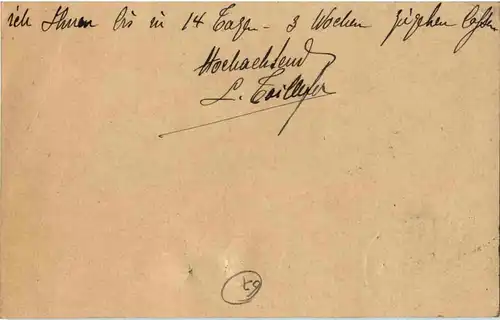 ich Ihnen bis in 14 Tagen - 3 Wochen zugehen lassen
Hochachtend
L.